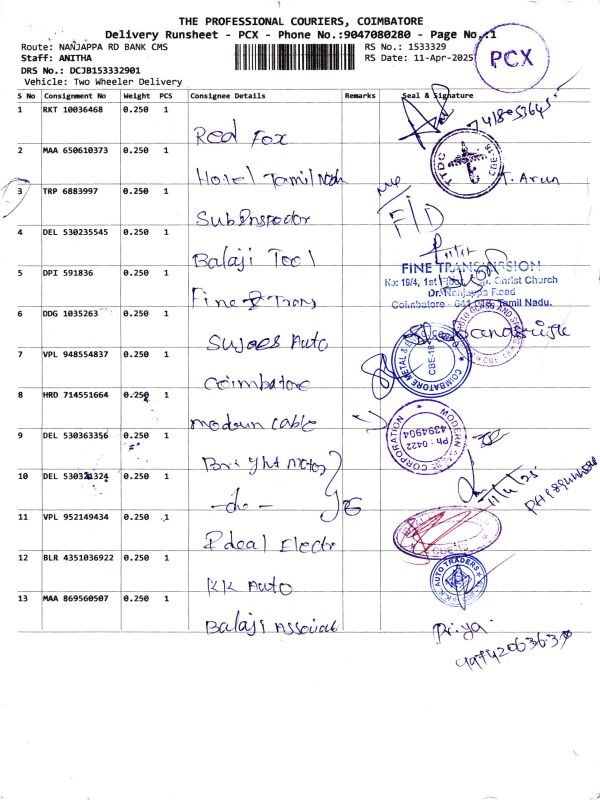 THE PROFESSIONAL COURIERS, COIMBATORE
Delivery Runsheet - PCX - Phone No.:9047080280 - Page No.:1
Route: NANJAPPA RD BANK CMS
RS No.: 1533329
Staff: ANITHA
RS Date: 11-Apr-2025
PCX
DRS No.: DCJB153332901
Vehicle: Two Wheeler Delivery
S No Consignment No Weight PCS Consignee Details Remarks Seal & Signature
1 RKT 10036468 0.250 1
Red Fox
2 MAA 650610373 0.250 1
Hotel Tamil Nadu
TTDC
CBE-18
T. Arun
3 TRP 6883997 0.250 1
Sub Inspector
4 DEL 530235545 0.250 1
Balaji Tool
5 DPI 591836 0.250 1
Fine Trans
FINE TRANSMISSION
No: 19/4, 1st Christ Church
Dr. Nanjappa Road
Coimbatore - 641 018, Tamil Nadu.
6 DDG 1035263 0.250 1
Auto
7 VPL 948554837 0.250 1
Coimbatore
COIMBATORE METAL &
CBE-18
8 HRD 714551664 0.250 1
modern cable
MODERN
CORPORATION
Ph : 0422
4394904
9 DEL 530363356 0.250 1
Bright motor
10 DEL 530321324 0.250 1
-do-
11 VPL 952149434 0.250 1
Ideal Electr
12 BLR 4351036922 0.250 1
KK Auto
K.K. AUTO TRADERS
13 MAA 869560507 0.250 1
Balaji Associat
Priya